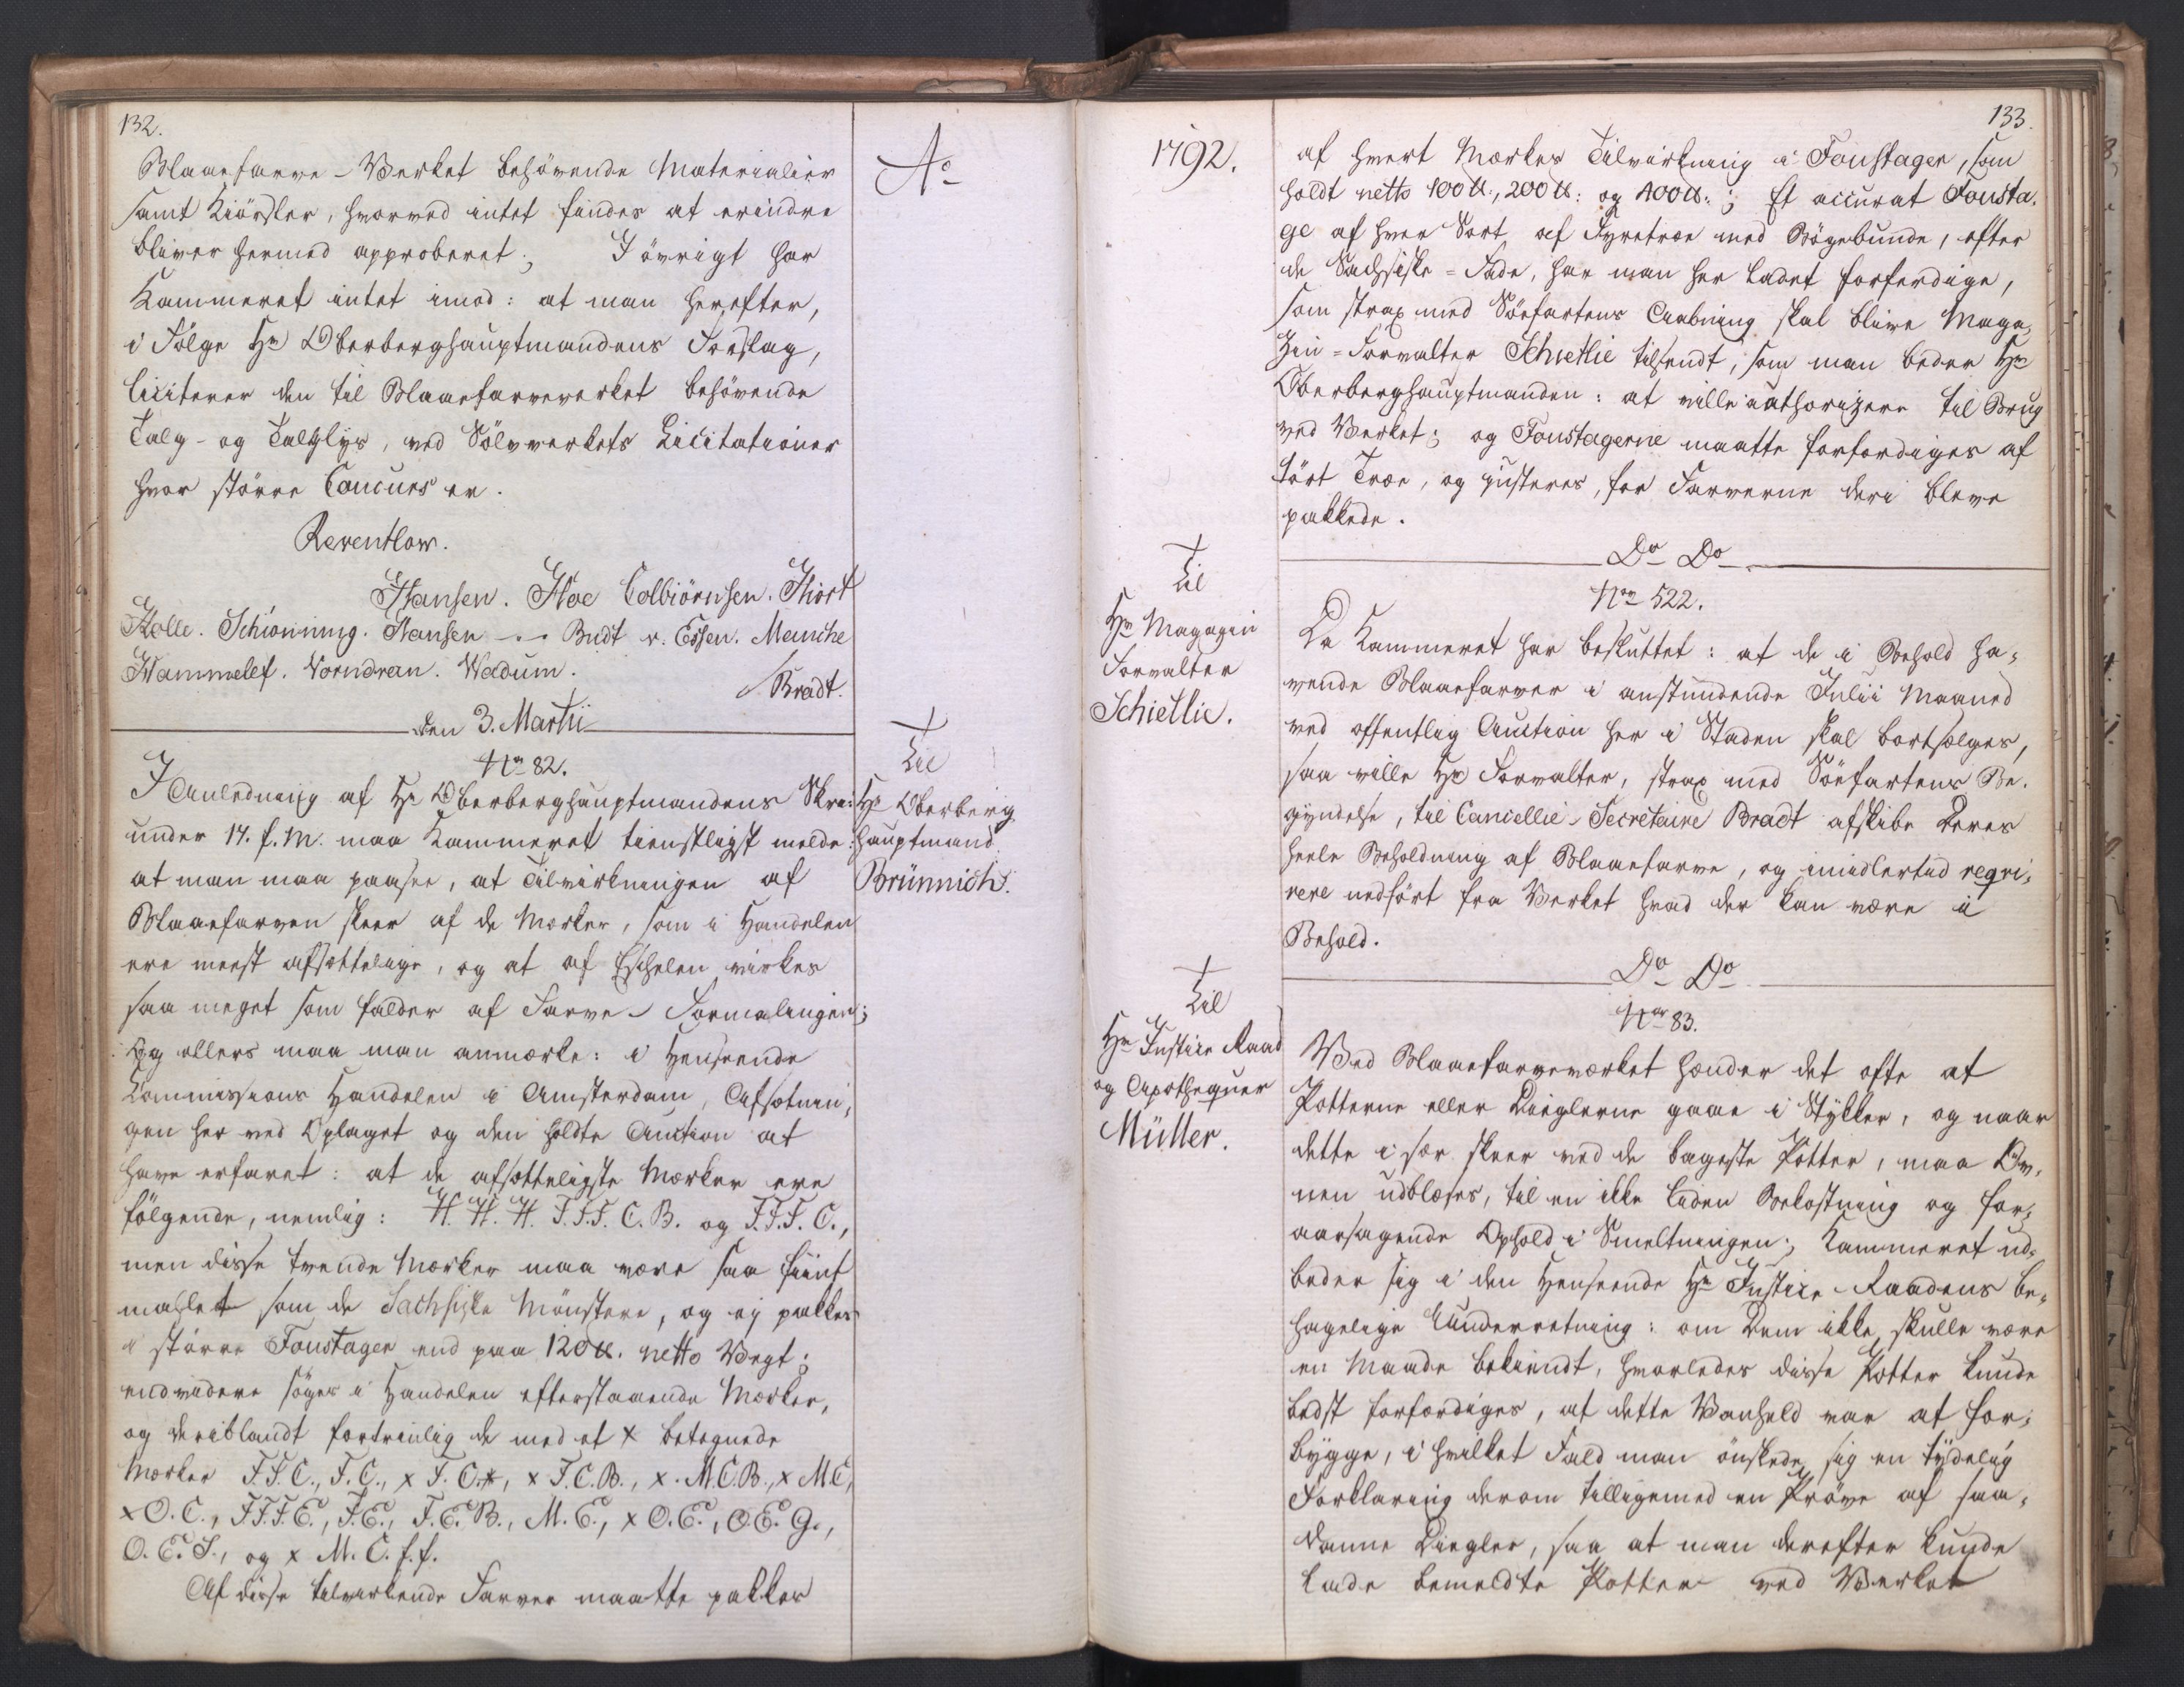 132.
Blaaefarve-Verket behövende Materialier
samt Kiörsler, hvorved intet findes at erindre
bliver hermed approberet; I övrigt har
Kammeret intet imod: at man herefter,
i Fölge Hr Oberberghauptmandens Forslag,
liciterer den til Blaaefarveverket behövende
Talg- og Talglys, ved Sölvverkets Licitationer
hvor större Concurs er.
Reventlow.
Hansen. Hoe Colbiörnsen. Hiort
Holle. Schiönning. Hansen - - Budt v. Essen. Meinche
Hammelef. Vorndran. Wadum.
Bradt.
Ao
den 3. Martii
No 82.
Til
Hr Oberberg
hauptmand
Brünnich.
I Anledning af Hr Oberberghauptmandens Skr:
under 17. f. M. maa Kammeret tienstligst melde:
at man maa paasee, at Tilvirkningen af
Blaaefarven skeer af de Mærker, som i Handelen
ere meest afsættelige, og at af Eschelen virkes
saa meget som falder af Farve-Formalingen;
Og ellers maa man anmærke: i Henseende
Commissions Handelen i Amsterdam, Afsætnin,
gen her ved Oplaget og den holdte Auction at
have erfaret: at de afsætteligste Mærker ere
fölgende, nemlig: H. H. H. F.F.F. C. B. og F.F.F. C.,
men disse tvende Mærker maa være saa fiint
mahlet som de Sachsiske Mönstere, og ej pakkes
i större Foustager end paa 120 ℔. netto Vegt;
endvidere söges i Handelen efterstaaende Mærker,
og deriblandt fortrinlig de med et x betegnede
Mærker F.F.C., F.C., x F.C.*, x F.C.B., x. M.C.B., x M.C,
x O.C., F.F.F.E., F.E., F.E.B., M.E., x O.E., O.E.G.,
O.E.S., og x M.C.f.f.
Af disse tilvirkende Farver maatte pakkes
1792.
133.
af hvert Mærkes Tilvirkning i Foustager, som
holdt netto 100 ℔., 200 ℔: og 400 ℔.; Et accurat Fousta-
ge af hver Sort af Fyretræe med Bögebunde, efter
de Sachsiske-Fade, har man her ladet forferdige,
som strax med Söefartens Aabning skal blive Maga,
zin-Forvalter Schietlie tilsendt, som man beder Hr
Oberberghauptmanden: at ville authorizere til Brug
ved Verket; og Foustagerne maatte forfærdiges af
tört Træe, og justeres, før Farverne deri bleve
pakkede.
Do Do
No 522.
Til
Hr Magazin
Forvalter
Schietlie.
Da Kammeret har besluttet: at de i Behold ha,
vende Blaaefarver i anstundende Julii Maaned
ved offentlig Auction her i Staden skal bortsælges,
saa ville Hr Forvalter, strax med Söefartens Be-
gyndelse, til Cancellie-Secretaire Bradt afskibe Deres
heele Beholdning af Blaaefarve, og imidlertid reqvi,
rere nedfört fra Verket hvad der kan være i
Behold.
Do Do
No 83.
Til
Hr Justice Raad
og Apothequer
Müller.
Ved Blaaefarveværket hænder det ofte at
Potterne eller Dieglerne gaae i Stykker, og naar
dette i sær skeer ved de bageste Potter, maa Ov,
nen udblæses, til en ikke liden Bekostning og for,
aarsagende Ophold i Smeltningen; Kammeret ud,
beder sig i den Henseende Hr Justice-Raadens be,
hagelige Underretning: om Dem ikke skulle være
en Maade bekiendt, hvorledes disse Potter kunde
bedst forfærdiges, at dette Vanheld var at for,
bygge, i hvilket Fald man önskede sig en tydelig
Forklaring derom tilligemed en Pröve af saa,
danne Diegler, saa at man derefter kunde
lade bemeldte Potter ved Verket